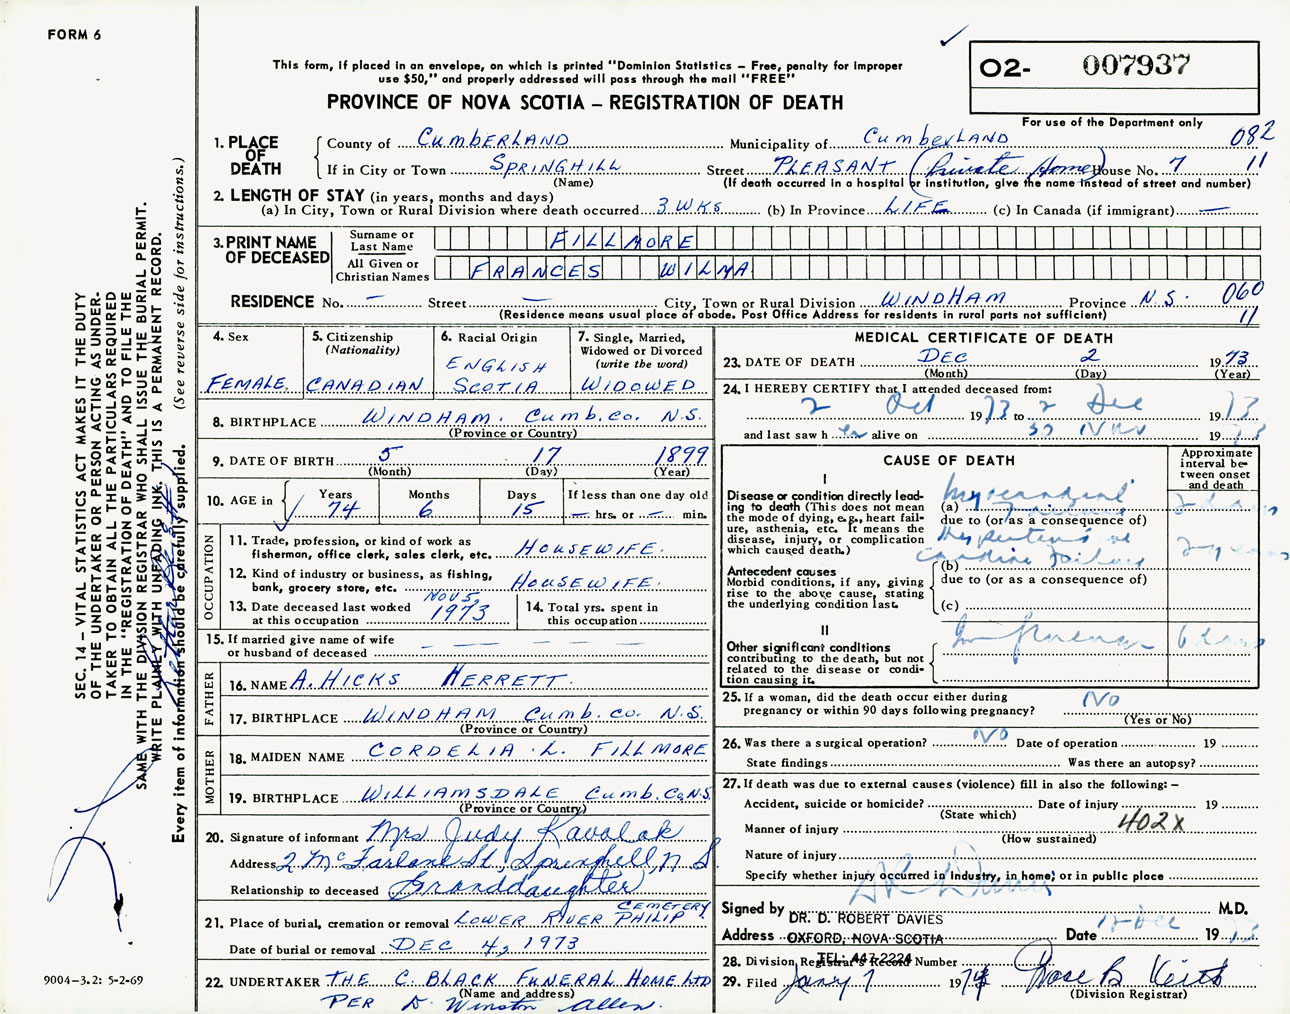 FORM 6
This form, if placed in an envelope, on which is printed "Dominion Statistics – Free, penalty for improper
use $50," and properly addressed will pass through the mail "FREE"
PROVINCE OF NOVA SCOTIA – REGISTRATION OF DEATH
O2- 007937
For use of the Department only
1. PLACE OF DEATH
County of CUMBERLAND Municipality of CUMBERLAND 082
If in City or Town SPRINGHILL Street PLEASANT (Private Home) House No. 7 11
(Name) (If death occurred in a hospital or institution, give the name instead of street and number)
2. LENGTH OF STAY (in years, months and days)
(a) In City, Town or Rural Division where death occurred 3 WKS (b) In Province LIFE (c) In Canada (if immigrant) —
3. PRINT NAME OF DECEASED
Surname or Last Name FILLMORE
All Given or Christian Names FRANCES WILMA
RESIDENCE No. — Street — City, Town or Rural Division WINDHAM Province N.S. 060
(Residence means usual place of abode. Post Office Address for residents in rural parts not sufficient) 11
4. Sex FEMALE
5. Citizenship (Nationality) CANADIAN
6. Racial Origin ENGLISH SCOTIA
7. Single, Married, Widowed or Divorced (write the word) WIDOWED
8. BIRTHPLACE WINDHAM. Cumb. Co. N.S.
(Province or Country)
9. DATE OF BIRTH 5 17 1899
(Month) (Day) (Year)
10. AGE in Years 74 Months 6 Days 15 If less than one day old — hrs. or — min.
OCCUPATION
11. Trade, profession, or kind of work as fisherman, office clerk, sales clerk, etc. HOUSEWIFE.
12. Kind of industry or business, as fishing, bank, grocery store, etc. HOUSEWIFE.
13. Date deceased last worked at this occupation NOV 5, 1973
14. Total yrs. spent in this occupation
15. If married give name of wife or husband of deceased — — —
FATHER
16. NAME A. HICKS HERRETT.
17. BIRTHPLACE WINDHAM Cumb. Co. N.S.
(Province or Country)
MOTHER
18. MAIDEN NAME CORDELIA L. FILLMORE
19. BIRTHPLACE WILLIAMSDALE Cumb. Co. N.S.
(Province or Country)
20. Signature of informant Mrs Judy Kavalak
Address 2 McFarlane St, Springhill, N S
Relationship to deceased Granddaughter
21. Place of burial, cremation or removal LOWER RIVER PHILIP CEMETERY
Date of burial or removal DEC 4, 1973
22. UNDERTAKER THE C. BLACK FUNERAL HOME LTD
(Name and address)
PER D. Winston Allen.
MEDICAL CERTIFICATE OF DEATH
23. DATE OF DEATH DEC 2 1973
(Month) (Day) (Year)
24. I HEREBY CERTIFY that I attended deceased from:
2 Oct 1973 to 2 Dec 1973
and last saw h er alive on 30 Nov 1973
CAUSE OF DEATH
Approximate interval between onset and death
I
Disease or condition directly leading to death (This does not mean the mode of dying, e.g., heart failure, asthenia, etc. It means the disease, injury, or complication which caused death.)
(a) Myocardial Failure 2 days
due to (or as a consequence of)
Hypertensive
(b) Cardiac Failure 2 years
Antecedent causes
Morbid conditions, if any, giving rise to the above cause, stating the underlying condition last.
due to (or as a consequence of)
(c)
II
Other significant conditions contributing to the death, but not related to the disease or condition causing it.
25. If a woman, did the death occur either during pregnancy or within 90 days following pregnancy? No
(Yes or No)
26. Was there a surgical operation? No Date of operation 19
State findings Was there an autopsy?
27. If death was due to external causes (violence) fill in also the following: –
Accident, suicide or homicide? Date of injury 19
(State which)
Manner of injury 402X
(How sustained)
Nature of injury
Specify whether injury occurred in industry, in home, or in public place
Signed by DR. D. ROBERT DAVIES M.D.
Address OXFORD, NOVA SCOTIA Date Dec 1973
TEL: 447-2224
28. Division Registrar's Record Number
29. Filed Jany 7 1974 Rose B Keith
(Division Registrar)
SEC. 14 – VITAL STATISTICS ACT MAKES IT THE DUTY
OF THE UNDERTAKER OR PERSON ACTING AS UNDER-
TAKER TO OBTAIN ALL THE PARTICULARS REQUIRED
IN THE "REGISTRATION OF DEATH" AND TO FILE THE
SAME WITH THE DIVISION REGISTRAR WHO SHALL ISSUE THE BURIAL PERMIT.
WRITE PLAINLY WITH UNFADING INK. THIS IS A PERMANENT RECORD.
Every item of information should be carefully supplied. (See reverse side for instructions.)
9004-3.2: 5-2-69